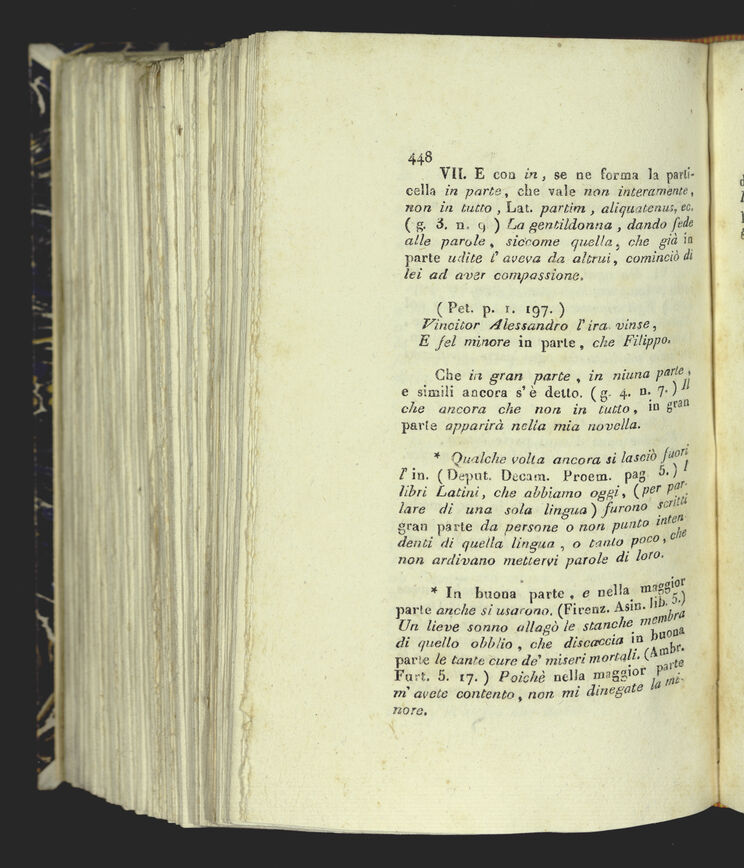 448
VII. E con in, se ne forma la parti-
cella in parte, che vale non interamente,
non in tutto, Lat. partim, aliquatenus, ec.
(g. 3. n. 9) La gentildonna, dando fede
alle parole, siccome quella, che già in
parte udite l'aveva da altrui, cominciò di
lei ad aver compassione.
(Pet. p. 1. 197.)
Vincitor Alessandro l'ira vinse,
E fel minore in parte, che Filippo.
Che in gran parte, in niuna parte,
e simili ancora s'è detto. (g. 4. n. 7.) Il
che ancora che non in tutto, in gran
parte apparirà nella mia novella.
* Qualche volta ancora si lasciò fuori
l'in. (Deput. Decam. Proem. pag 5.) I
libri Latini, che abbiamo oggi, (per par-
lare di una sola lingua) furono scritti
gran parte da persone o non punto inten-
denti di quella lingua, o tanto poco, che
non ardivano mettervi parole di loro.
* In buona parte, e nella maggior
parte anche si usarono. (Firenz. Asin. lib. 5.)
Un lieve sonno allagò le stanche membra
di quello obblio, che discaccia in buona
parte le tante cure de' miseri mortali. (Ambr.
Furt. 5. 17.) Poichè nella maggior parte
m'avete contento, non mi dinegate la mi-
nore.